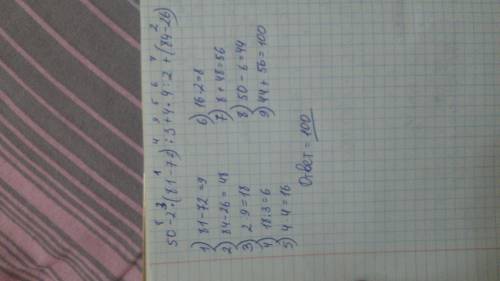 8 3 1 4 9 5 6 7 2
50-2·(81-72):3+4·4:2+(84-26)
1) 81-72=9
2) 84-26=48
3) 2·9=18
4) 18:3=6
5) 4·4=16
6) 16:2=8
7) 8+48=56
8) 50-6=44
9) 44+56=100
Ответ=100